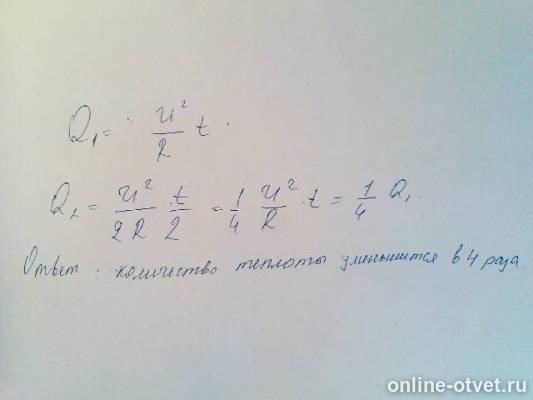 Q₁ = u²/R t.
Q₂ = u²/2R · t/2 = 1/4 u²/R · t = 1/4 Q₁.
Ответ: количество теплоты уменьшится в 4 раза.
online-otvet.ru